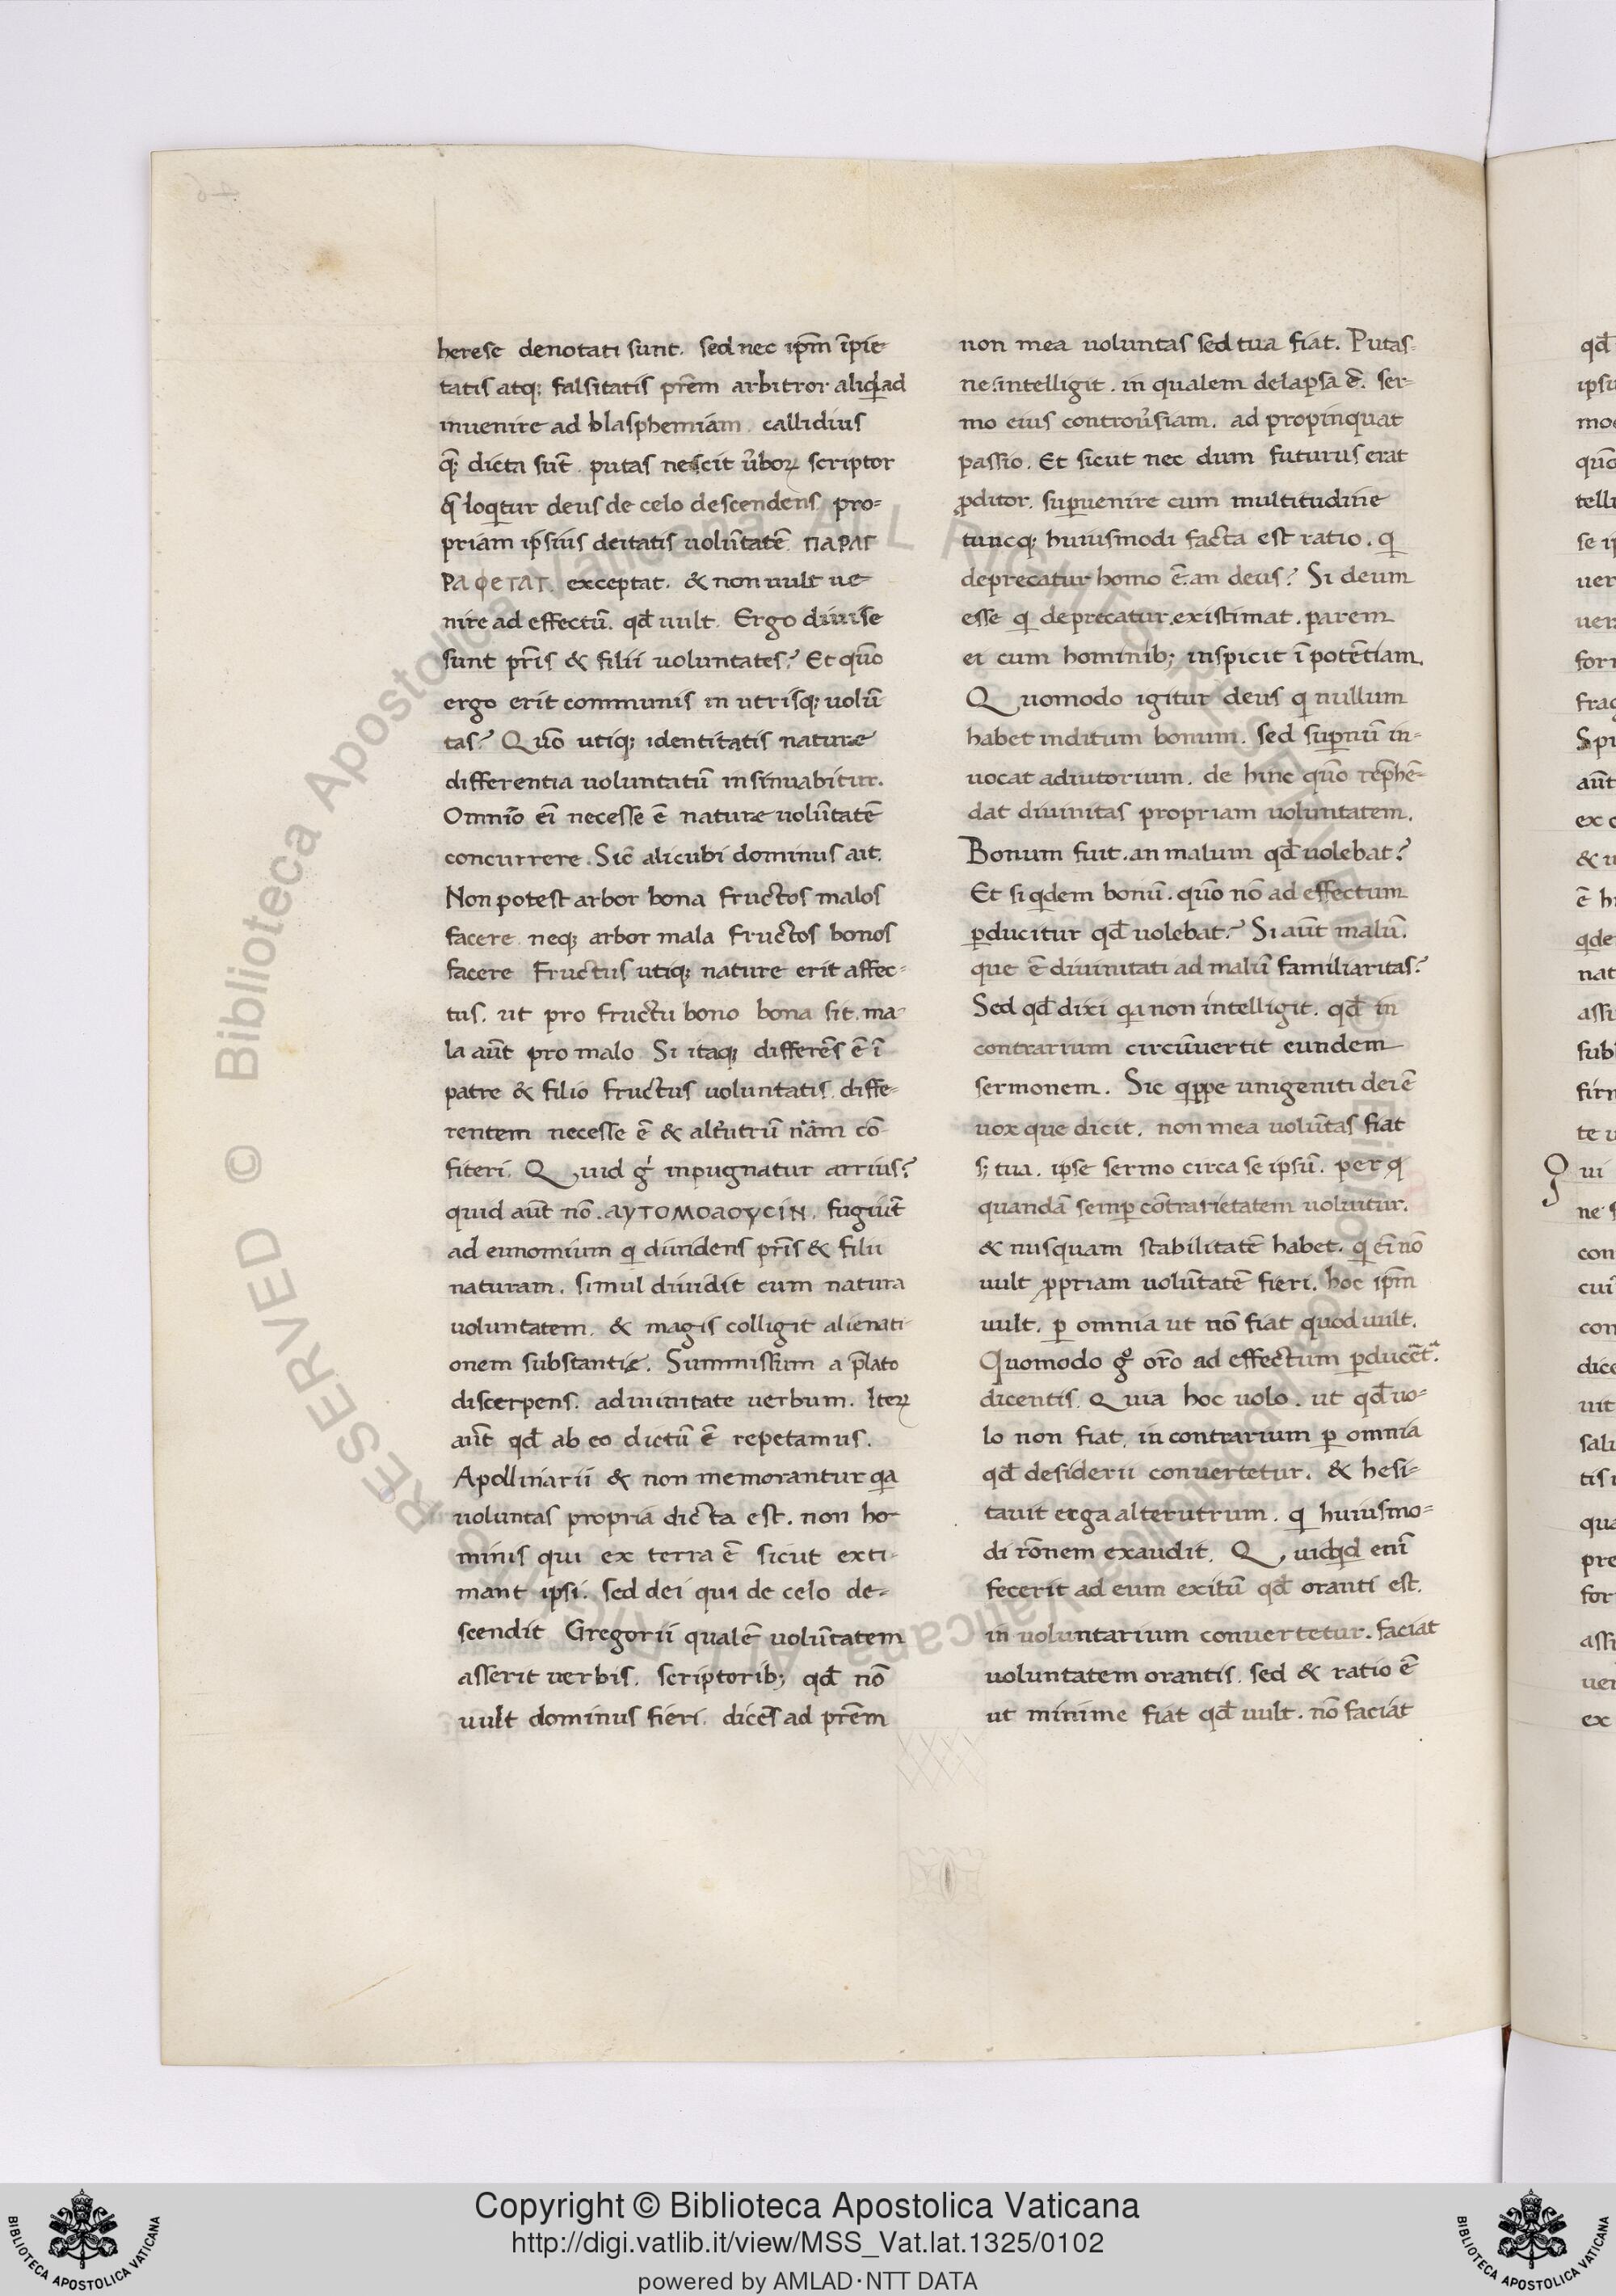 herese denotati sunt. sed nec ip̄m īpie-
tatis atq; falsitatis pr̄em arbitror aliqd ad
inuenire ad blasphemiam. callidius
q̄; dicta sūt. putas nescit u̾boꝝ scriptor
q̄ loqitur deus de celo descendens pro=
priam ipsius deitatis volūtatē. ΠΑΡΑΓ
ΡΑφΕΤΑΤ. exceptat. & non uult ue-
nire ad effectū. qđ uult. Ergo diuise
sunt pr̄is & filii voluntates? Et quō
ergo erit communis in utrisq; uolū
tas? Quō utiq; identitatis naturæ
differentia uoluntatū insinuabitur.
Omnīo eī necesse ē naturæ uolūtatē
concurrere. Sic̄ alicubi dominus ait.
Non potest arbor bona fructos malos
facere neq; arbor mala fructos bonos
facere Fructus utiq; nature erit affec-
tus. ut pro fructu bono bona sit. ma-
la aūt pro malo. Si itaq; differēs ē ī
patre & filio fructus uoluntatis. diffe-
rentem necesse ē & alt̾utrū n̄am cō-
fiteri. Quid g̾ inpugnatur arrius?
quid aūt nō. ΑΥΤΟΜΟΛΟΥCΙΝ. fugiūt
ad eunomium q diuidens pr̄is & filii
naturam. simul diuidit cum natura
voluntatem. & magis colligit alienati-
onem substantię. Summissum a p̄lato
discerpens. adiuinitate uerbum. Iteꝝ
aūt qđ ab eo dictū ē repetamus.
Apollinarii & non memorantur qa
uoluntas propria dicta est. non ho-
minis qui ex terra ē sicut exti-
mant ipsi. sed dei qui de celo de-
scendit Gregorii qualē uolūtatem
asserit uerbis. scriptorib; qđ nō
uult dominus fieri. dicēs ad pr̄em
non mea uoluntas sed tua fiat. Putas-
ne intelligit. in qualem delapsa ē. ser-
mo eius controu̾siam. ad propinquat
passio. Et sicut nec dum futurus erat
ꝓditor. suꝑuenire cum multitudine
tuncq; huiusmodi facta est ratio. q
deprecatur homo ē. an deus? Si deum
esse q deprecatur existimat. parem
ei cum hominib; inspicit īpotētiam.
Quomodo igitur deus q nullum
habet inditum bonum. sed suꝑnū in-
uocat adiutorium. de hinc quō rep̄hē-
dat diuinitas propriam uoluntatem.
Bonum fuit. an malum qđ uolebat?
Et si qdem bonū. quō nō ad effectum
ꝑducitur qđ uolebat? Si aūt malū.
que ē diuinitati ad malū familiaritas?
Sed qđ dixi qa non intelligit. qđ in
contrarium circūuertit eundem
sermonem. Sic qppe unigeniti dei ē
uox que dicit. non mea uolūtas fiat
s; tua. ipse sermo circa se ipsū. per q
quandā semꝑ cōtrarietatem uoluitur.
& nusquam stabilitatē habet. q eī nō
uult ꝓpriam uolūtatē fieri. hoc ip̄m
uult. ꝑ omnia ut nō fiat quod uult.
Quomodo gͦ or̄o ad effectum ꝑducēt̾.
dicentis. Quia hoc uolo. ut qđ uo-
lo non fiat. in contrarium ꝑ omnia
qđ desiderii conuertetur. & hesi-
tauit erga alterutrum. q huiusmo-
di rōnem exaudit. Quidqd enī
fecerit ad eum exitū qđ oranti est.
in uoluntarium conuertetur. faciat
uoluntatem orantis. sed & ratio ē
ut minime fiat qđ uult. nō faciat
Copyright © Biblioteca Apostolica Vaticana
http://digi.vatlib.it/view/MSS_Vat.lat.1325/0102
powered by AMLAD·NTT DATA